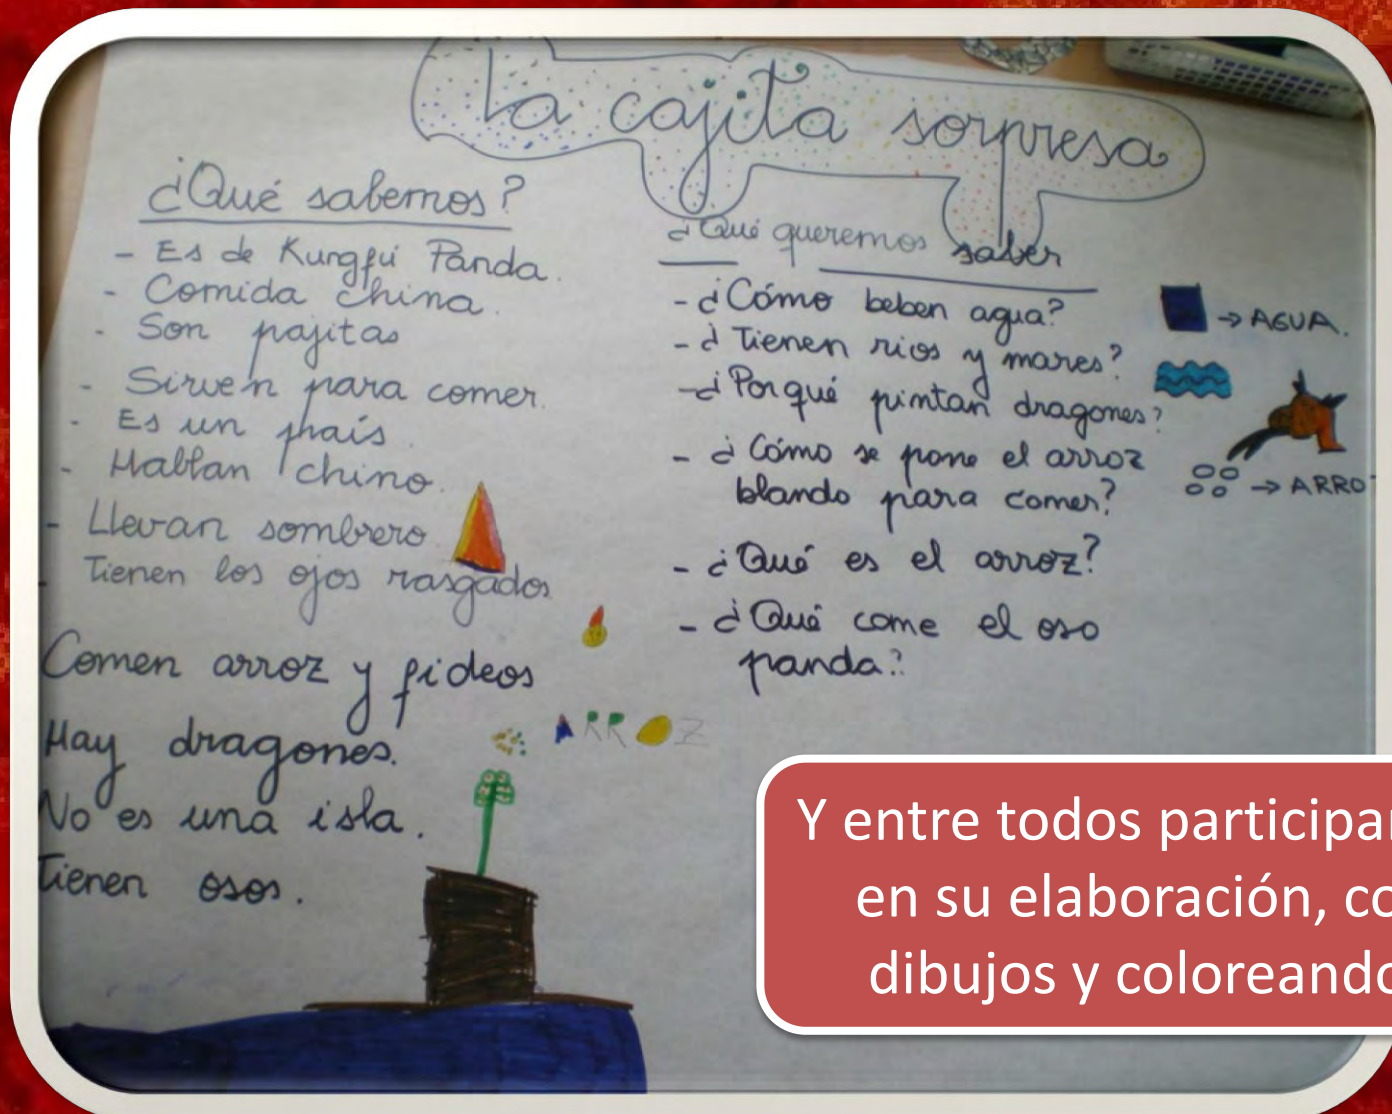 La cajita sorpresa
¿Qué sabemos?
- Es de Kungfú Panda.
- Comida china.
- Son pajitas
- Sirven para comer.
- Es un país.
- Hablan chino.
- Llevan sombrero.
- Tienen los ojos rasgados
Comen arroz y fideos
ARROZ
Hay dragones.
No es una isla.
Tienen osos.
¿Qué queremos saber
- ¿Cómo beben agua?
→ AGUA.
- ¿Tienen rios y mares?
- ¿Porqué pintan dragones?
- ¿Cómo se pone el arroz
blando para comer?
→ ARRO
- ¿Qué es el arroz?
- ¿Qué come el oso
panda?
Y entre todos participa
en su elaboración, co
dibujos y coloreando